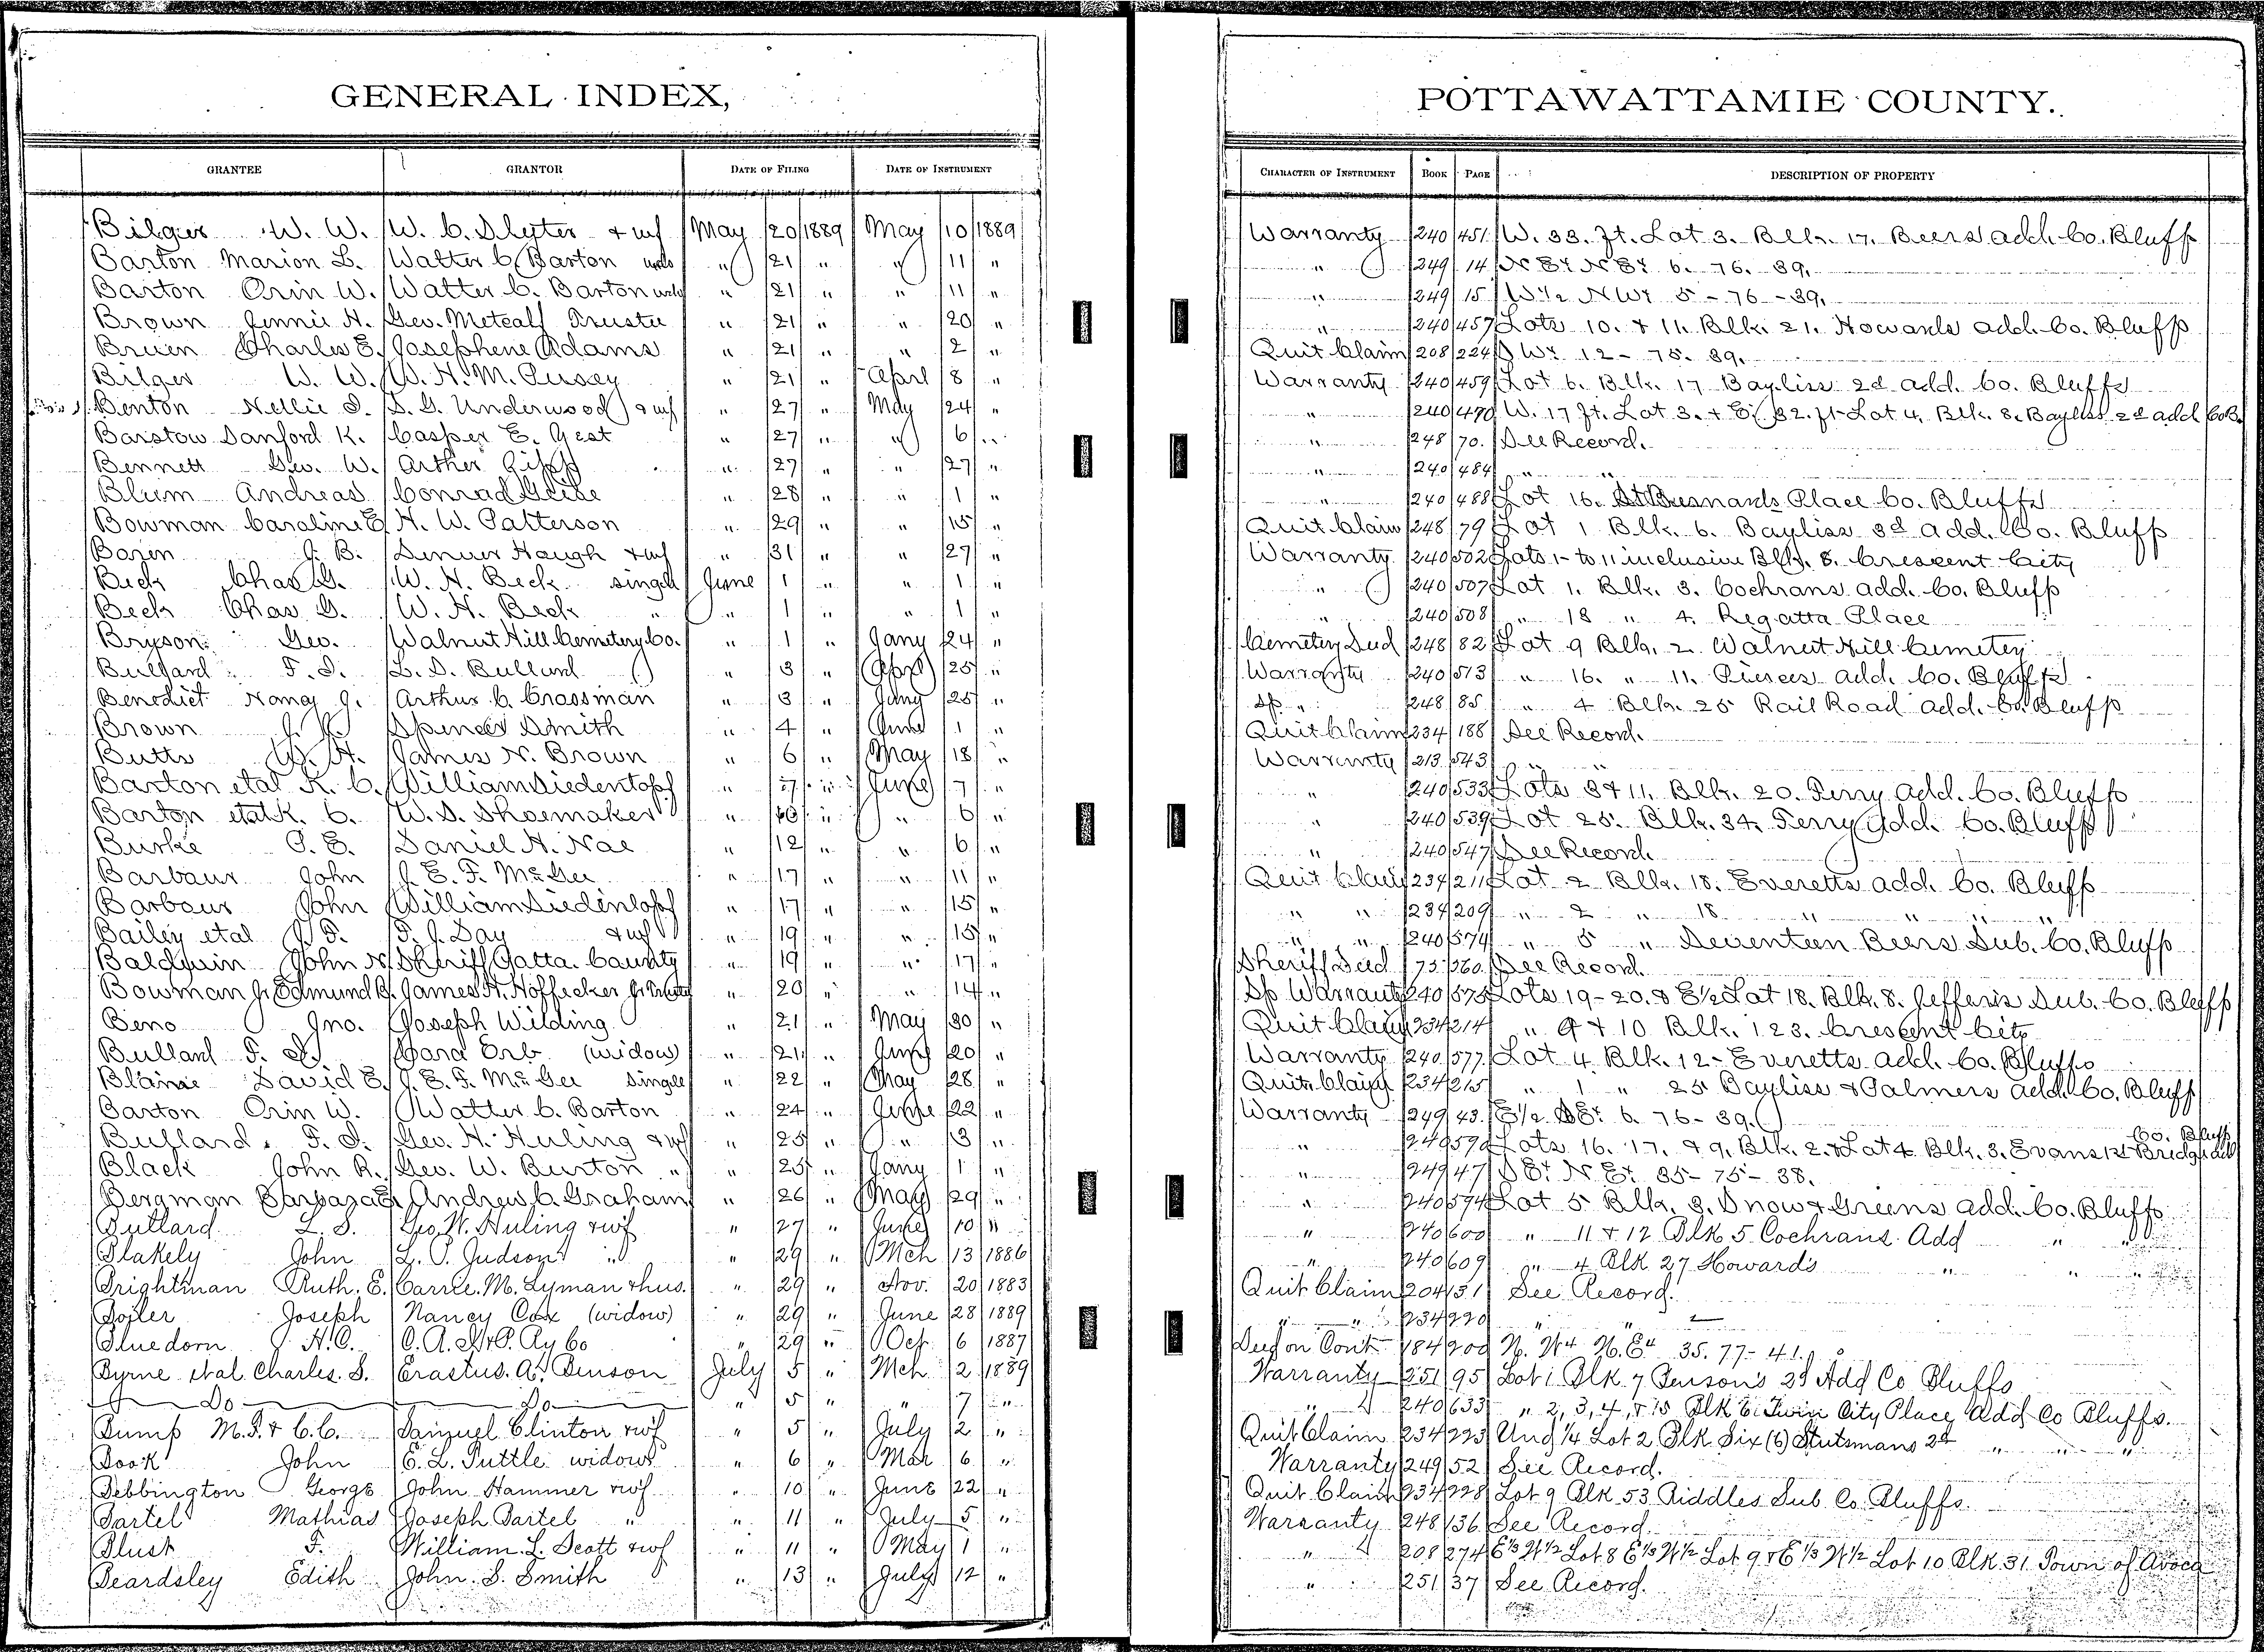 GENERAL INDEX,
GRANTEE GRANTOR DATE OF FILING DATE OF INSTRUMENT
Bilger W. W. W. C. Slyter + wf May 20 1889 May 10 1889
Barton Marion L. Walter C. Barton " 21 " " 11 "
Barton Orin W. Walter C. Barton " 21 " " 11 "
Brown Jennie H. Geo. Metcalf Trustee " 21 " " 20 "
Bruen Charles E. Josephene Adams " 21 " " 2 "
Bilger W. W. W. H. M. Pusey " 21 " April 8 "
Benton Nellie S. S. G. Underwood + wf " 27 " May 24 "
Barstow Sanford K. Casper E. Gest " 27 " " 6 "
Bennett Geo. W. Arther Gipp " 27 " " 27 "
Blum Andreas Conrad Geise " 28 " " 1 "
Bowman Caroline E. H. W. Patterson " 29 " " 15 "
Boren J. B. Denver Haugh + wf " 31 " " 27 "
Beck Chas. G. W. H. Beck single June 1 " " 1 "
Beck Chas G. W. H. Beck " " 1 " " 1 "
Bryson Geo. Walnut Hill Cemetery Co. " 1 " Jany 24 "
Bullard F. S. L. S. Bullard " 3 " April 25 "
Benedict Nancy J. Arthur C. Crossman " 3 " Jany 25 "
Brown J. Spencer Smith " 4 " June 1 "
Butts W. H. James N. Brown " 6 " May 18 "
Barton etal K. C. William Siedentopf " 7 " June 7 "
Barton etal K. C. W. S. Shoemaker " 10 " " 6 "
Burke P. E. Daniel H. Nae " 12 " " 6 "
Barbour John J. E. F. McGee " 17 " " 11 "
Barbour John William Siedentopf " 17 " " 15 "
Bailey etal J. F. F. J. Day + wf " 19 " " 15 "
Baldwin John N. Sheriff Potta. County " 19 " " 17 "
Bowman Jr Edmund B. James H. Hoffecker Jr Trustee " 20 " " 14 "
Beno Jno. Joseph Wilding " 21 " May 30 "
Bullard F. S. Dora Erb (widow) " 21 " June 20 "
Blaine David E. J. E. F. McGee single " 22 " May 28 "
Barton Orin W. Walter C. Barton " 24 " June 22 "
Bullard F. S. Geo. H. Huling + wf " 25 " " 3 "
Black John R. Geo. W. Burton " " 25 " Jany 1 "
Bergman Barbara E. Andrew C. Graham " 26 " May 29 "
Bullard L. S. Geo. H. Huling + wf " 27 " June 10 "
Blakely John L. P. Judson " " 29 " Mch 13 1886
Brightman Ruth. E. Carrie. M. Lyman + hus. " 29 " Nov. 20 1883
Boiler Joseph Nancy Cox (widow) " 29 " June 28 1889
Bluedorn H. C. C. R. I. & P. Ry Co " 29 " Oct 6 1887
Byrne etal Charles. S. Erastus. A. Benson July 5 " Mch 2 1889
Do Do " 5 " " 7 "
Bump M. F. + C. C. Samuel Clinton + wf " 5 " July 2 "
Book John E. L. Tuttle widow " 6 " Mar 6 "
Bebbington George John Hammer + wf " 10 " June 22 "
Bartel Mathias Joseph Bartel " " 11 " July 5 "
Blust F. William. L. Scott + wf " 11 " May 1 "
Beardsley Edith John. S. Smith " 13 " July 12 "
POTTAWATTAMIE COUNTY.
CHARACTER OF INSTRUMENT BOOK PAGE DESCRIPTION OF PROPERTY
Warranty 240 451 W. 33. ft. Lot 3. Blk. 17. Beers add. Co. Bluffs
" 249 14 N E4 N E4 6. 76. 39.
" 249 15 W 1/2 N W4 5 - 76 - 39.
" 240 457 Lots 10. + 11. Blk. 21. Howards add. Co. Bluffs
Quit Claim 208 224 S W4 12 - 75. 39.
Warranty 240 459 Lot 6. Blk. 17 Bayliss 2d add. Co. Bluffs
" 240 470 W. 17 ft. Lot 3. + E. 32. ft Lot 4. Blk. 8. Bayliss 2d add Co B.
" 248 70. See Record.
" 240 484 " "
" 240 488 Lot 16. St Bernards Place Co. Bluffs
Quit Claim 248 79 Lot 1 Blk. 6. Bayliss 3d add. Co. Bluffs
Warranty 240 502 Lots 1 to 11 inclusive Blk. 8. Crescent City
" 240 507 Lot 1. Blk. 3. Cochrans add. Co. Bluffs
" 240 508 " 18 " 4. Regatta Place
Cemetery Deed 248 82 Lot 9 Blk. 2. Walnut Hill Cemetery
Warranty 240 513 " 16. " 11. Pierces add. Co. Bluffs
Sp " 248 85 " 4 Blk. 25 Rail Road add. Co. Bluffs
Quit Claim 234 188 See Record.
Warranty 213 543 " "
" 240 533 Lots 8 + 11. Blk. 20. Ferry add. Co. Bluffs
" 240 539 Lot 25. Blk. 34. Ferry add. Co. Bluffs
" 240 547 See Record
Quit Claim 234 211 Lot 2 Blk. 18. Everetts add. Co. Bluffs
" " 234 209 " 2 " 18 " " " "
" " 240 574 " 5 " Seventeen Beers Sub. Co. Bluffs
Sheriff Deed 75 360 See Record
Sp Warranty 240 575 Lots 19 - 20. & E 1/2 Lot 18. Blk. 8. Jefferis Sub. Co. Bluffs
Quit Claim 234 214 " 9 + 10 Blk. 123. Crescent City
Warranty 240 577 Lot 4. Blk. 12 - Everetts add. Co. Bluffs
Quit Claim 234 215 " 1 " 25 Bayliss & Palmers add. Co. Bluffs
Warranty 249 43. E 1/2 S E4 6. 76 - 39.
" 240 590 Lots 16. 17. + 9. Blk. 2. + Lot 4 Blk. 3. Evans 1st Bridge add Co. Bluffs
" 249 47 S E4 N E4 35 - 75 - 38.
" 240 594 Lot 5 Blk. 3. Snow & Greens add. Co. Bluffs
" 240 600 " 11 + 12 Blk 5 Cochrans Add " "
" 240 609 " 4 Blk 27 Howard's " "
Quit Claim 204 31 See Record.
" " 234 220 " "
Deed on Cont 184 200 N. W4 N. E4 35. 77 - 41.
Warranty 251 95 Lot 1 Blk 7 Benson's 2d Add Co Bluffs
" 240 633 " 2, 3, 4, + 15 Blk 6. Twin City Place Add Co Bluffs.
Quit Claim 234 223 Und 1/4 Lot 2 Blk Six (6) Stutsmans 2d " " "
Warranty 249 52 See Record.
Quit Claim 234 228 Lot 9 Blk 53 Riddles Sub Co. Bluffs.
Warranty 248 136 See Record
" 208 274 E 1/3 W 1/2 Lot 8 E 1/3 W 1/2 Lot 9 + E 1/3 W 1/2 Lot 10 Blk 31 Town of Avoca
" 251 37 See Record.